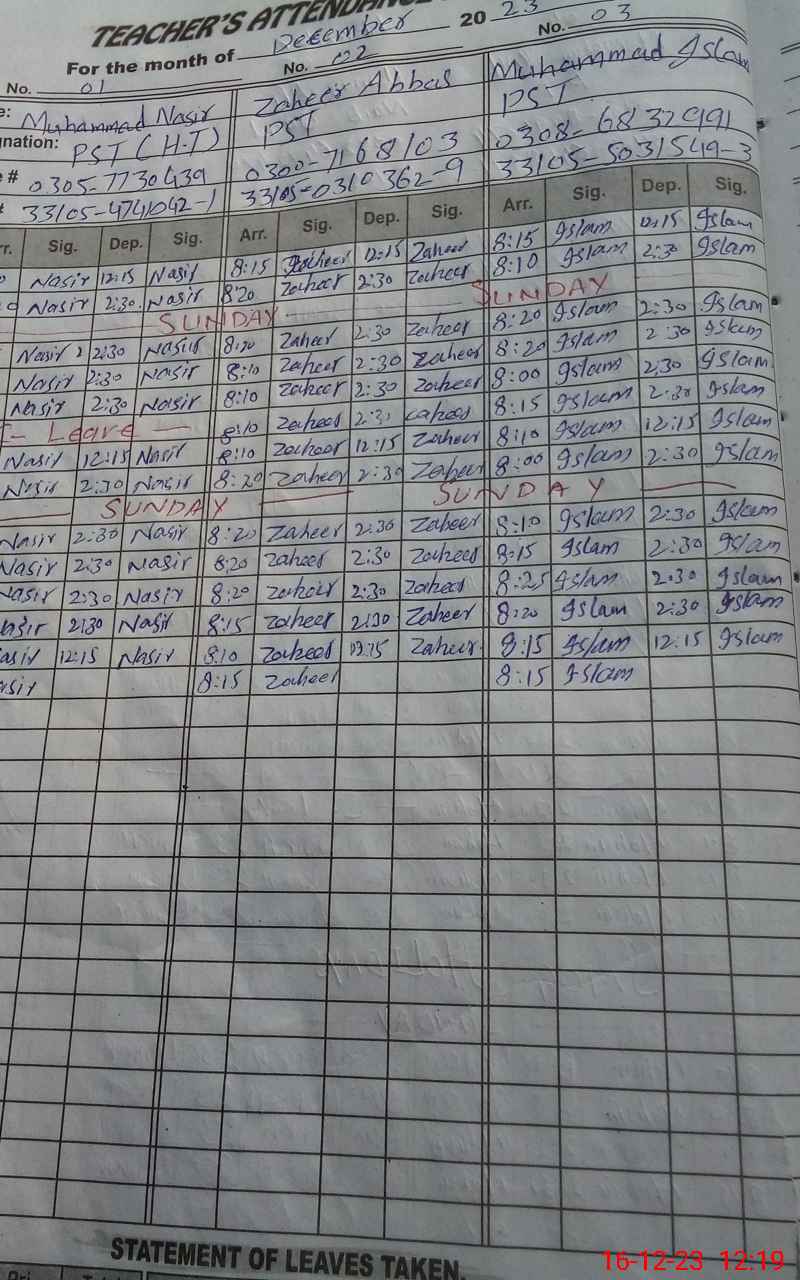 TEACHER'S ATTENDANCE
For the month of December 20 23
No. 01 No. 02 No. 03
e: Muhammad Nasir Zaheer Abbas Muhammad Islam
gnation: PST (H.T) PST PST
e # 0305-7730439 0300-7168103 0308-6832991
# 33105-4741042-1 33105-0310362-9 33105-5031549-3
rr. Sig. Dep. Sig. Arr. Sig. Dep. Sig. Arr. Sig. Dep. Sig.
Nasir 12:15 Nasir 8:15 Zaheer 12:15 Zaheer 8:15 Islam 12:15 Islam
Nasir 2:30 Nasir 8:20 Zaheer 2:30 Zaheer 8:10 Islam 2:30 Islam
SUNDAY SUNDAY
Nasir 2:30 Nasir 8:20 Zaheer 2:30 Zaheer 8:20 Islam 2:30 Islam
Nasir 2:30 Nasir 8:10 Zaheer 2:30 Zaheer 8:20 Islam 2:30 Islam
Nasir 2:30 Nasir 8:10 Zaheer 2:30 Zaheer 8:00 Islam 2:30 Islam
Leave 8:10 Zaheer 2:30 Zaheer 8:15 Islam 2:30 Islam
Nasir 12:15 Nasir 8:10 Zaheer 12:15 Zaheer 8:10 Islam 12:15 Islam
Nasir 2:30 Nasir 8:20 Zaheer 2:30 Zaheer 8:00 Islam 2:30 Islam
SUNDAY SUNDAY
Nasir 2:30 Nasir 8:20 Zaheer 2:30 Zaheer 8:10 Islam 2:30 Islam
Nasir 2:30 Nasir 8:20 Zaheer 2:30 Zaheer 8:15 Islam 2:30 Islam
Nasir 2:30 Nasir 8:20 Zaheer 2:30 Zaheer 8:25 Islam 2:30 Islam
asir 2:30 Nasir 8:15 Zaheer 2:30 Zaheer 8:20 Islam 2:30 Islam
asir 12:15 Nasir 8:10 Zaheer 12:15 Zaheer 8:15 Islam 12:15 Islam
sir 8:15 Zaheer 8:15 Islam
STATEMENT OF LEAVES TAKEN.
16-12-23 12:19